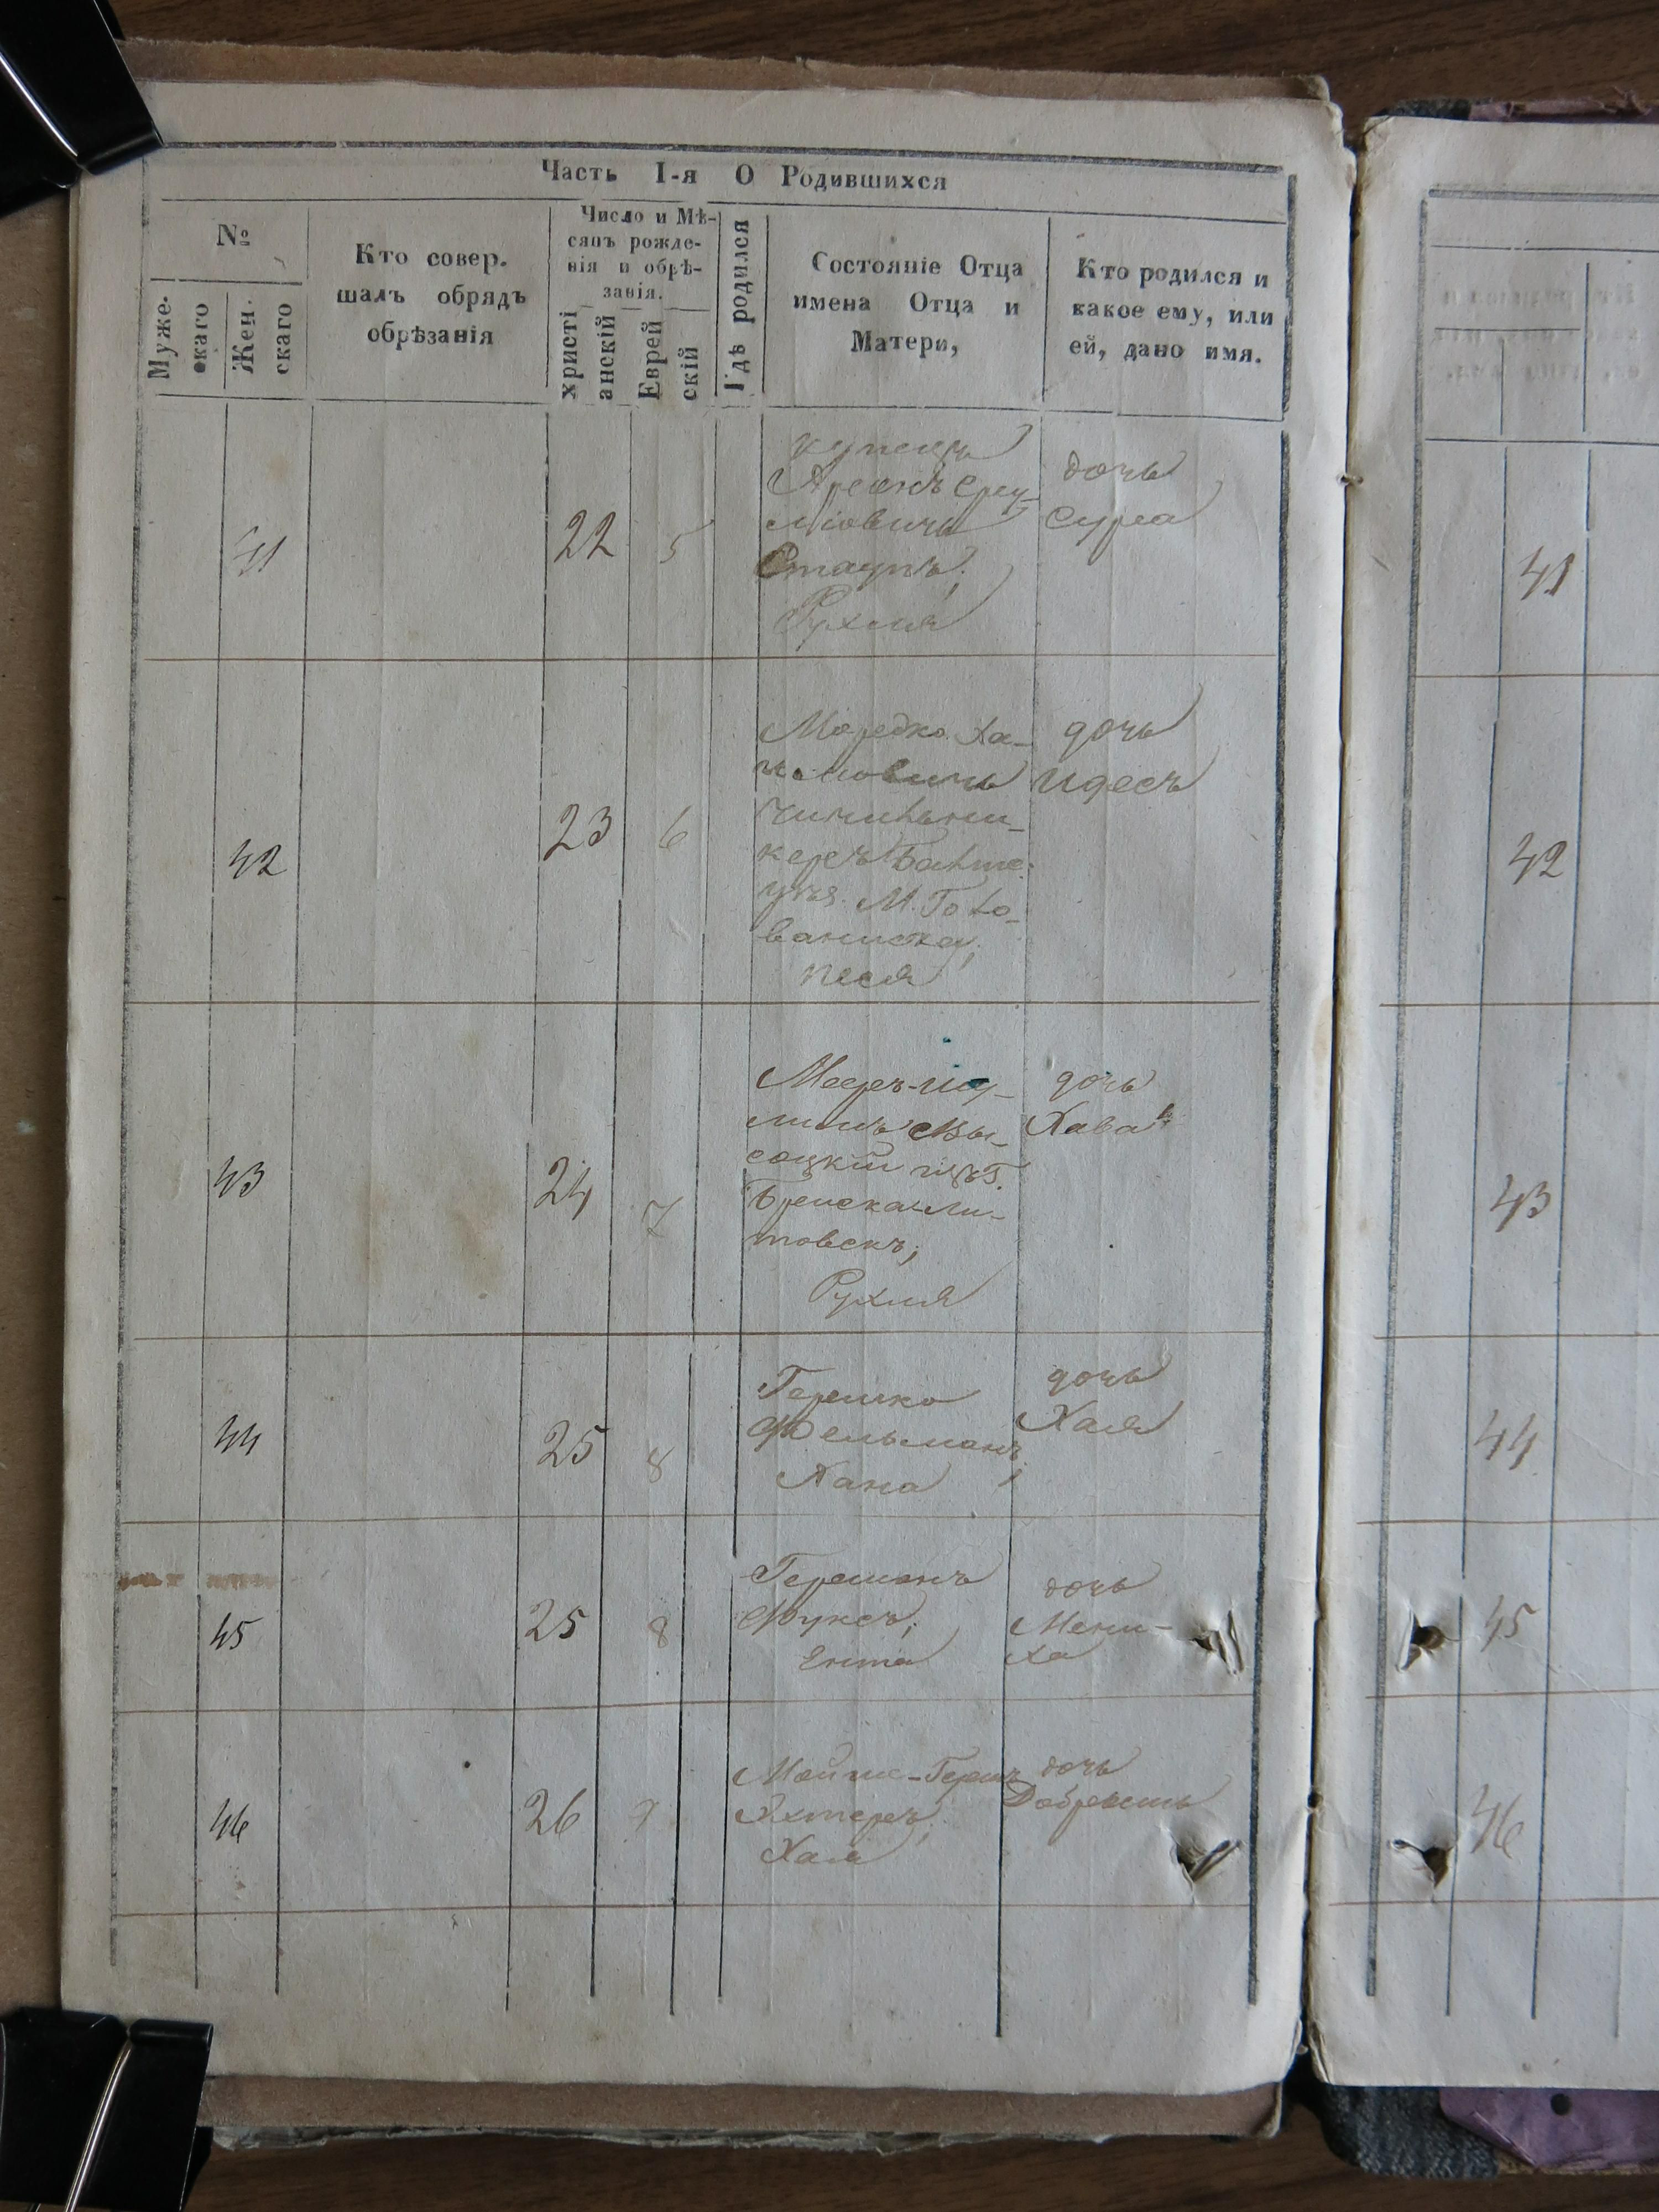 Часть I-я О Родившихся
№
Муже-
скаго
Жен.
скаго
Кто совер.
шалъ обрядъ
обрѣзанія
Число и Мѣ-
сяцъ рожде-
нія и обрѣ-
занія.
христі
анскій
Еврей
скій
Гдѣ родился
Состояніе Отца
имена Отца и
Матери,
Кто родился и
какое ему, или
ей, дано имя.
41
22
5
купецъ
Аронъ Сру-
лiовичъ
Рухля
дочь
Сура
41
42
23
6
Мордко Ха-
имовичъ
М. Голо-
ваниска;
Песя
дочь
Идесъ
42
43
24
7
соцкiй
товскъ;
Рухля
дочь
Хава
43
44
25
8
Гершко
Фельманъ;
Хана
дочь
Хая
44
45
25
8
Гершонъ
Фуксъ;
Ента
дочь
Мени-
ха
45
46
26
Мойше-Гершъ
Яхтеръ;
Хая
дочь
Добрышъ
46